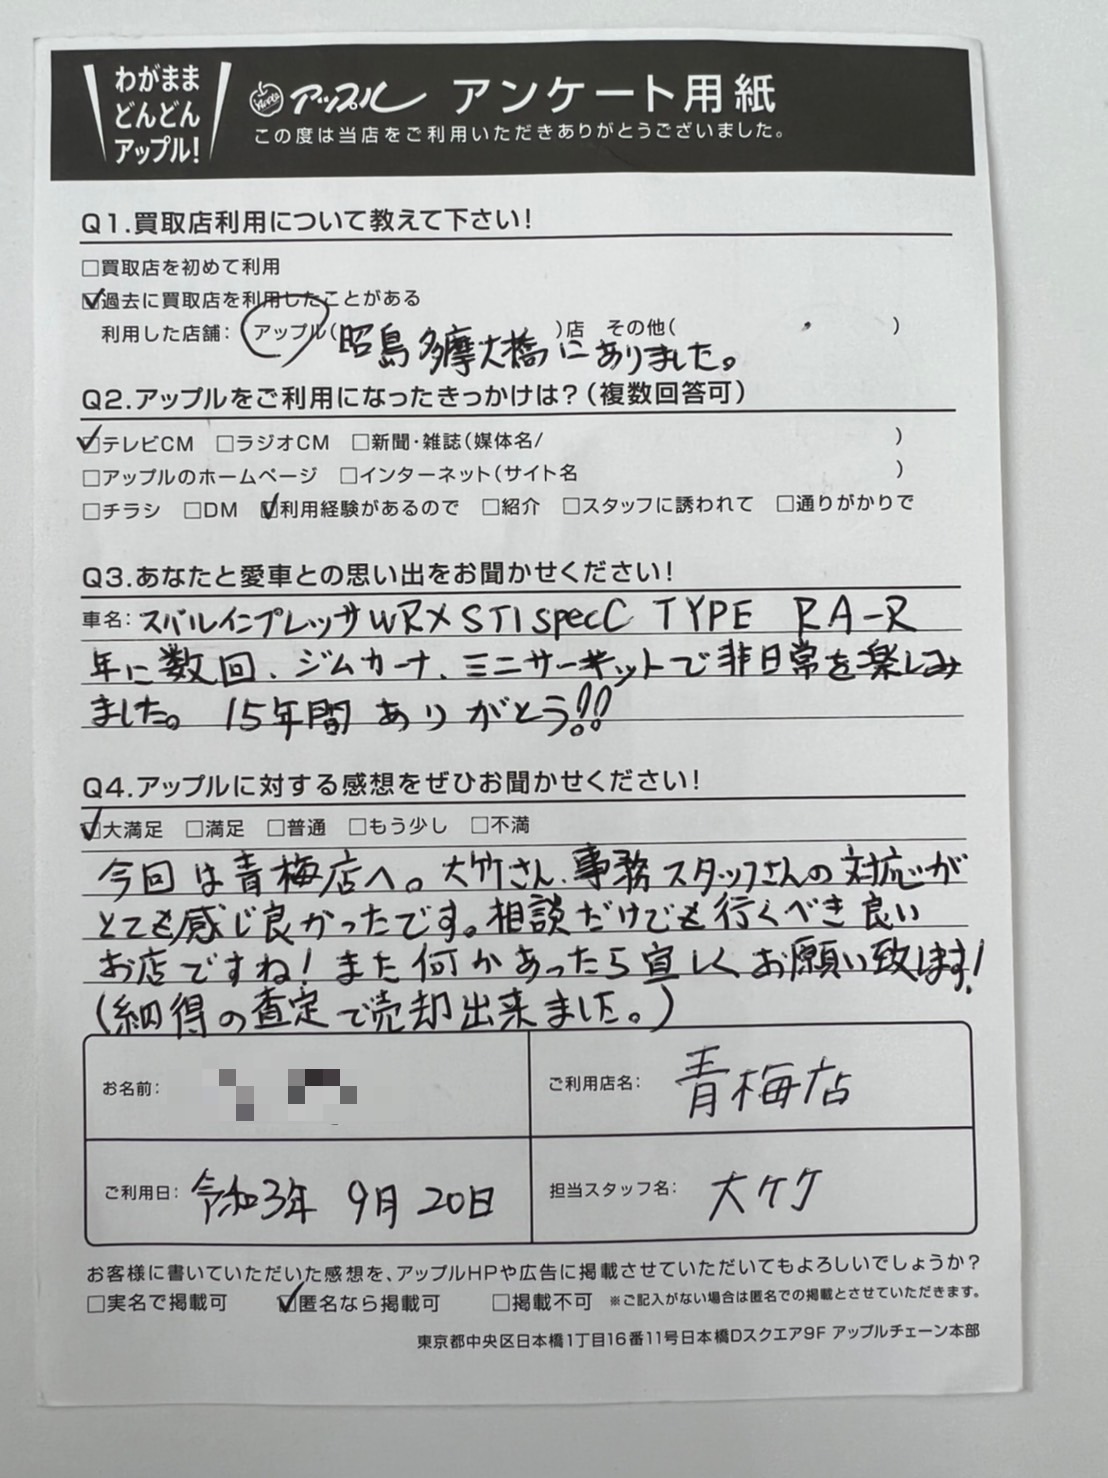 わがまま
どんどん
アップル!
アップル アンケート用紙
この度は当店をご利用いただきありがとうございました。
Q1.買取店利用について教えて下さい!
□買取店を初めて利用
☑過去に買取店を利用したことがある
利用した店舗: アップル(昭島多摩大橋にありました。)店 その他( )
Q2.アップルをご利用になったきっかけは?(複数回答可)
☑テレビCM □ラジオCM □新聞・雑誌(媒体名/ )
□アップルのホームページ □インターネット(サイト名 )
□チラシ □DM ☑利用経験があるので □紹介 □スタッフに誘われて □通りがかりで
Q3.あなたと愛車との思い出をお聞かせください!
車名: スバルインプレッサWRX STI specC TYPE RA-R
年に数回、ジムカーナ、ミニサーキットで非日常を楽しみ
ました。15年間ありがとう!!
Q4.アップルに対する感想をぜひお聞かせください!
☑大満足 □満足 □普通 □もう少し □不満
今回は青梅店へ。大竹さん、事務スタッフさんの対応が
とても感じ良かったです。相談だけでも行くべき良い
お店ですね!また何かあったら宜しくお願い致します!
(納得の査定で売却出来ました。)
お名前:
ご利用店名: 青梅店
ご利用日: 令和3年 9月 20日
担当スタッフ名: 大竹
お客様に書いていただいた感想を、アップルHPや広告に掲載させていただいてもよろしいでしょうか?
□実名で掲載可 ☑匿名なら掲載可 □掲載不可 ※ご記入がない場合は匿名での掲載とさせていただきます。
東京都中央区日本橋1丁目16番11号日本橋Dスクエア9F アップルチェーン本部